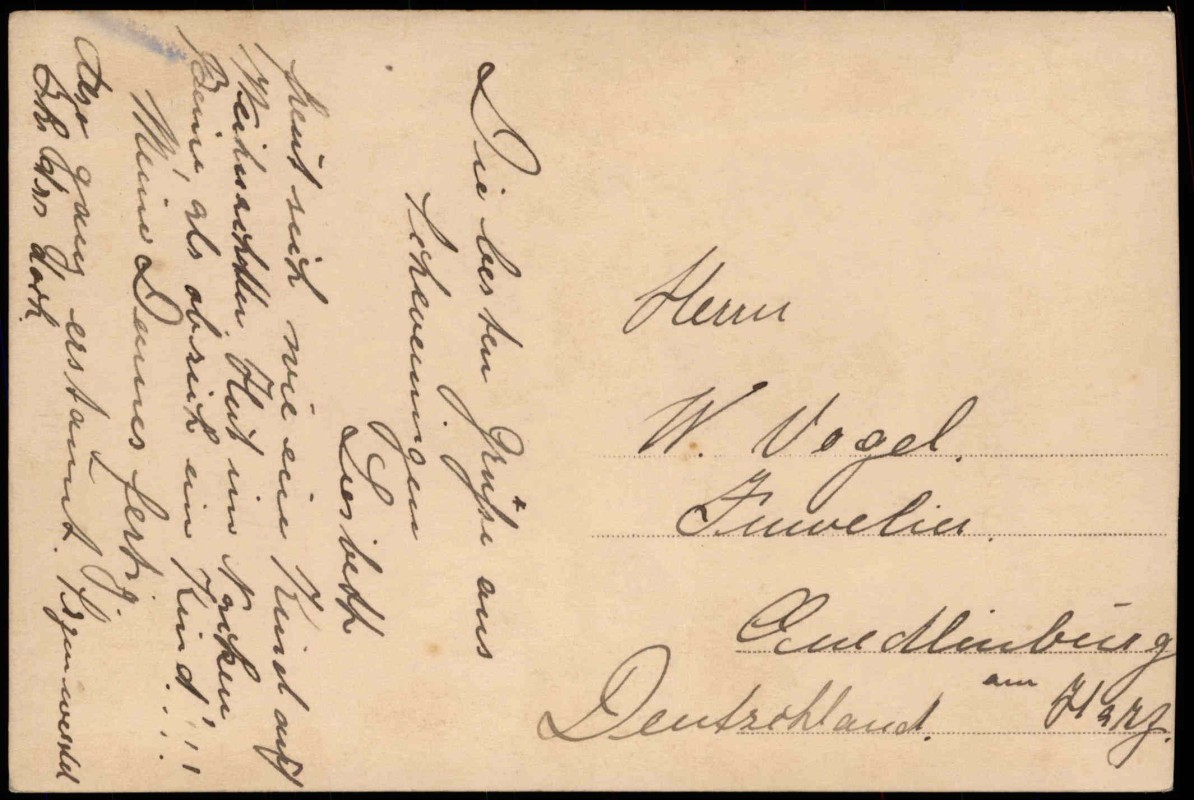 Die besten Grüße aus
Scheveningen.
Liesbeth
freut sich wie ein Kind auf
Weihnachten. Hut im Nacken
Beine, als ob sich ein Kind!!!
Meine Damen fertig.
Also ganz erstaunt.
Ihr dort
Herrn
W. Vogel.
Juwelier.
Quedlinburg
am Harz.
Deutschland.